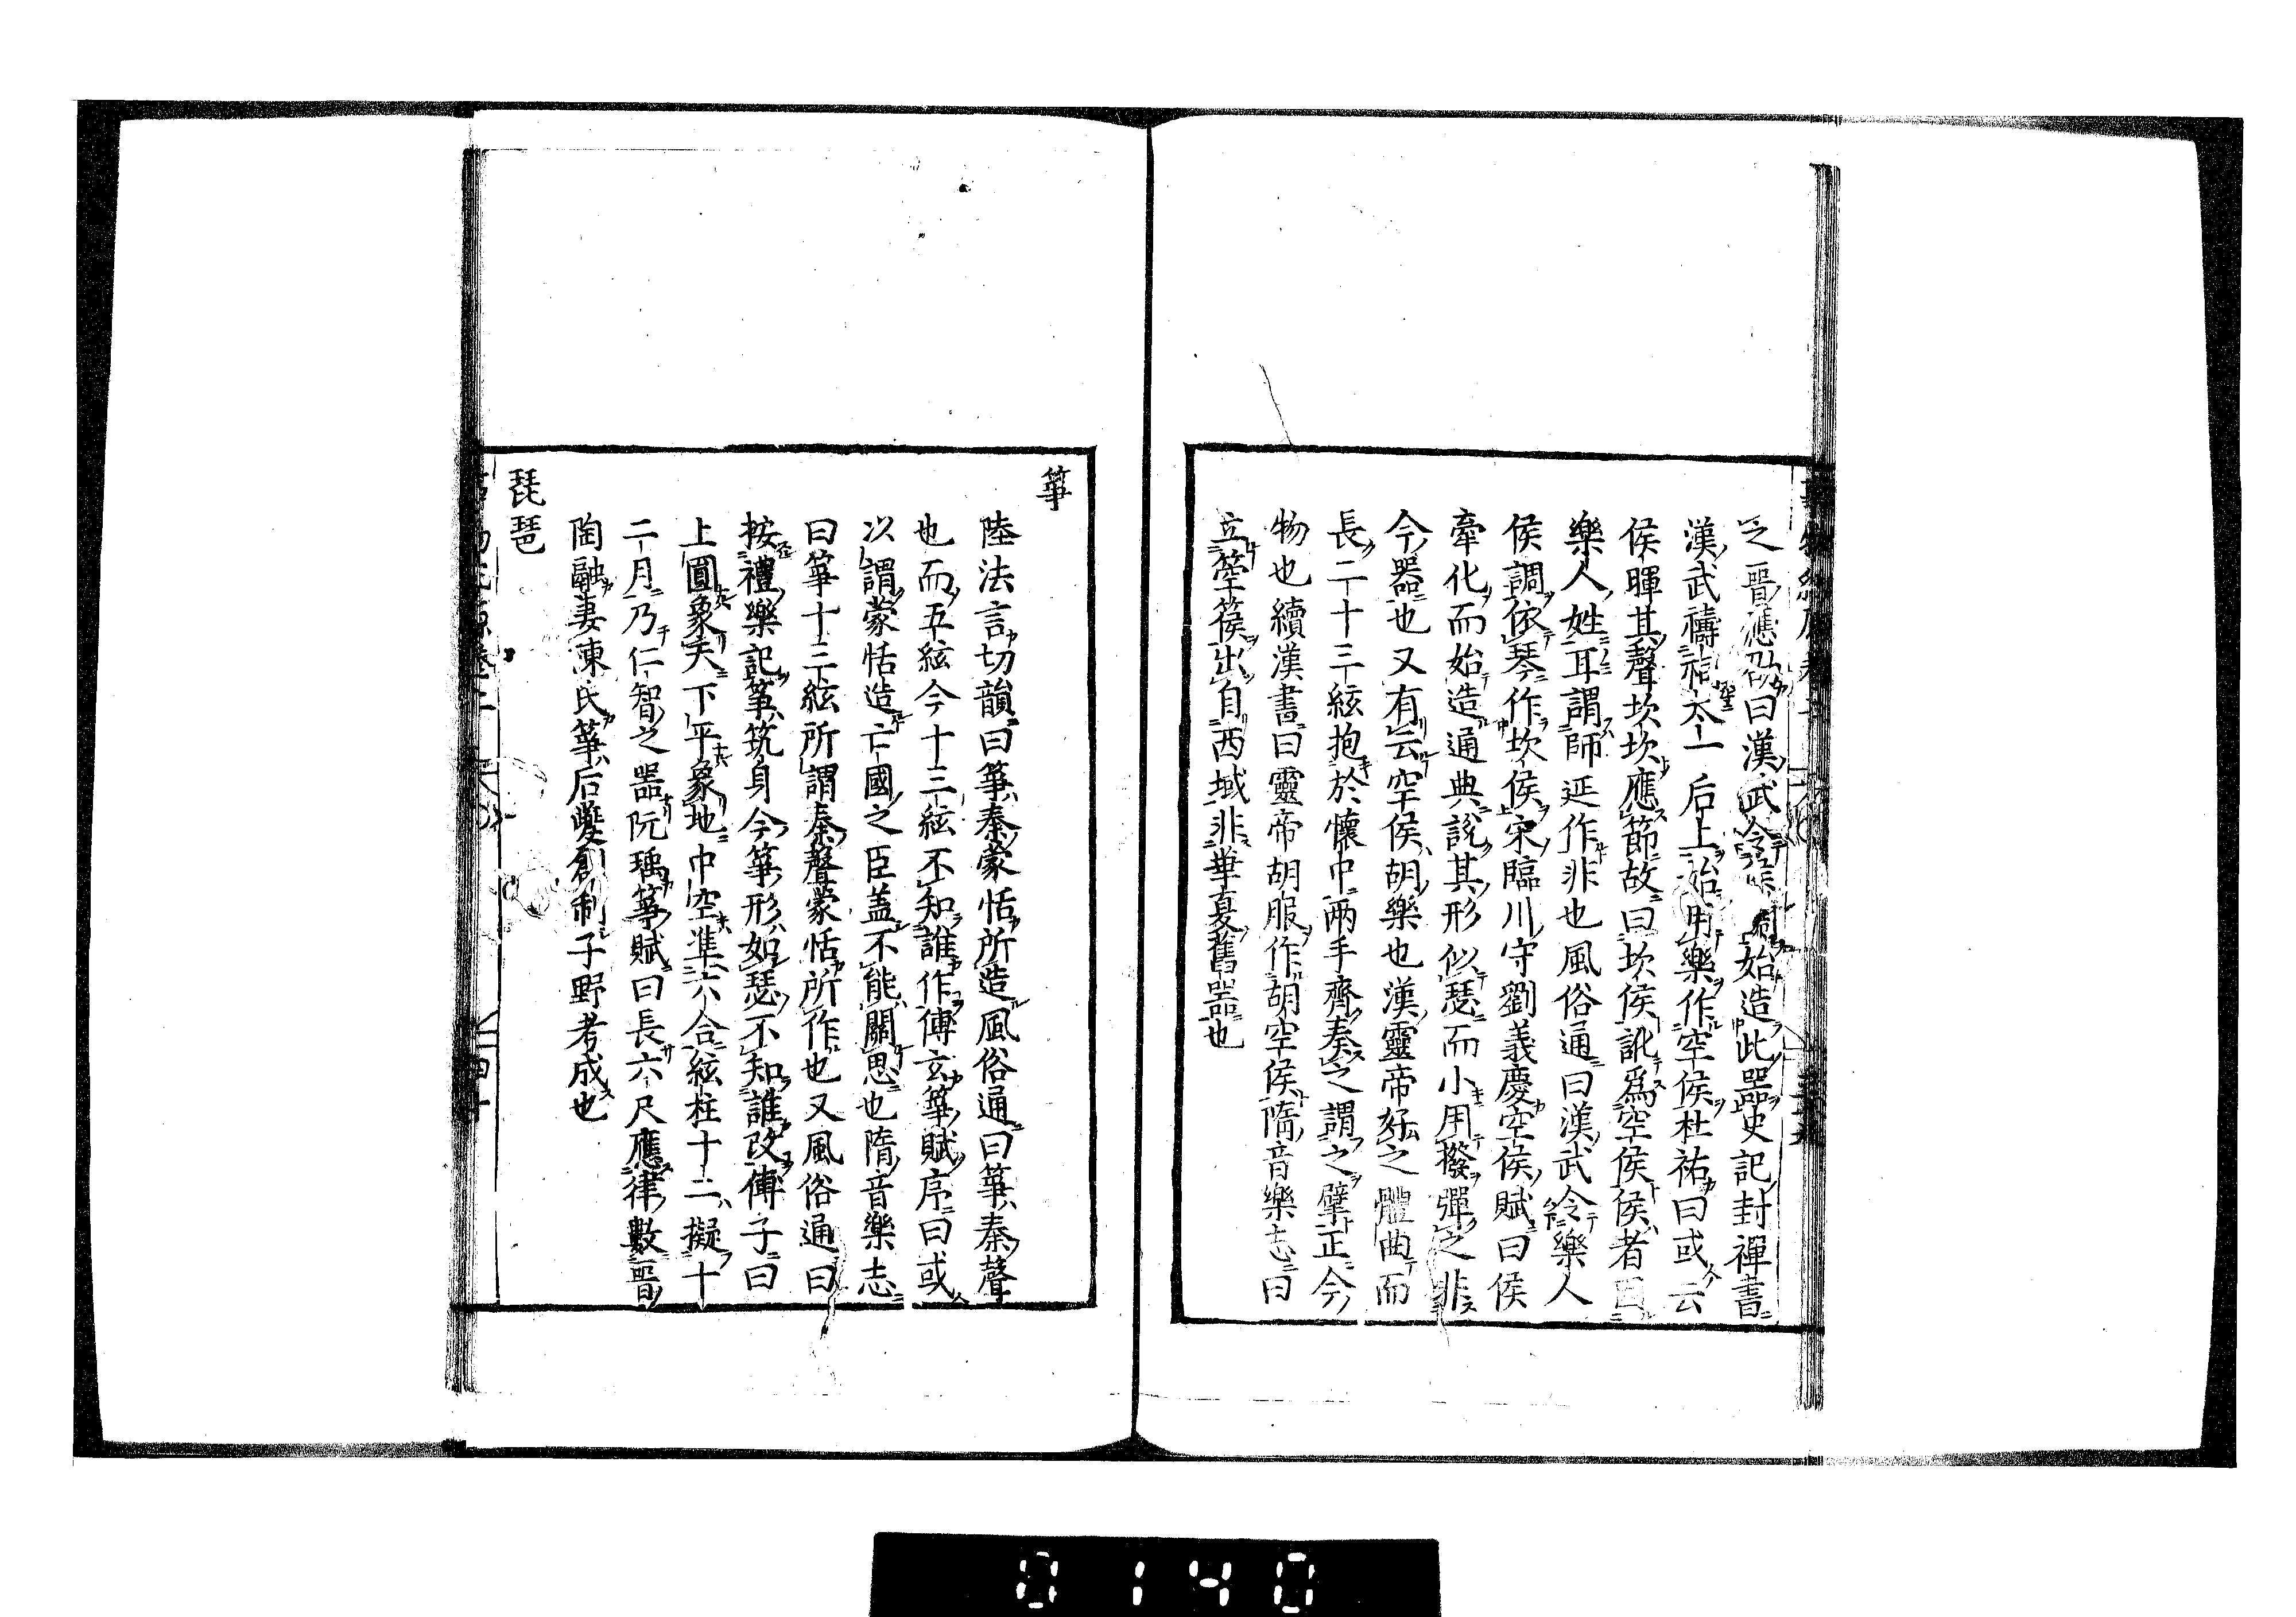 之晉應劭曰漢武令 始造此器史記封禪書
漢武禱祠太一后土始用樂作空侯杜祐曰或云
侯暉其聲坎坎應節故曰坎侯訛爲空侯侯者因
樂人姓耳謂師延作非也風俗通曰漢武令樂人
侯調依琴作坎侯宋臨川守劉義慶空侯賦曰侯
牽化而始造通典說其形似瑟而小用撥彈之非
今器也又有云空侯胡樂也漢靈帝好之體曲而
長二十三絃抱於懷中兩手齊奏之謂之擘正今
物也續漢書曰靈帝胡服作胡空侯隋音樂志曰
立箜篌出自西域非華夏舊器也
箏
陸法言切韻曰箏秦蒙恬所造風俗通曰箏秦聲
也而五絃今十三絃不知誰作傅玄箏賦序曰或
以謂蒙恬造亡國之臣盖不能關思也隋音樂志
曰箏十三絃所謂秦聲蒙恬所作也又風俗通曰
按禮樂記箏筑身今箏形如瑟不知誰改傅子曰
上圓象天下平象地中空準六合絃柱十二擬十
二月乃仁智之器阮瑀箏賦曰長六尺應律數晉
陶融妻陳氏箏后夔創制子野考成也
琵琶
0140